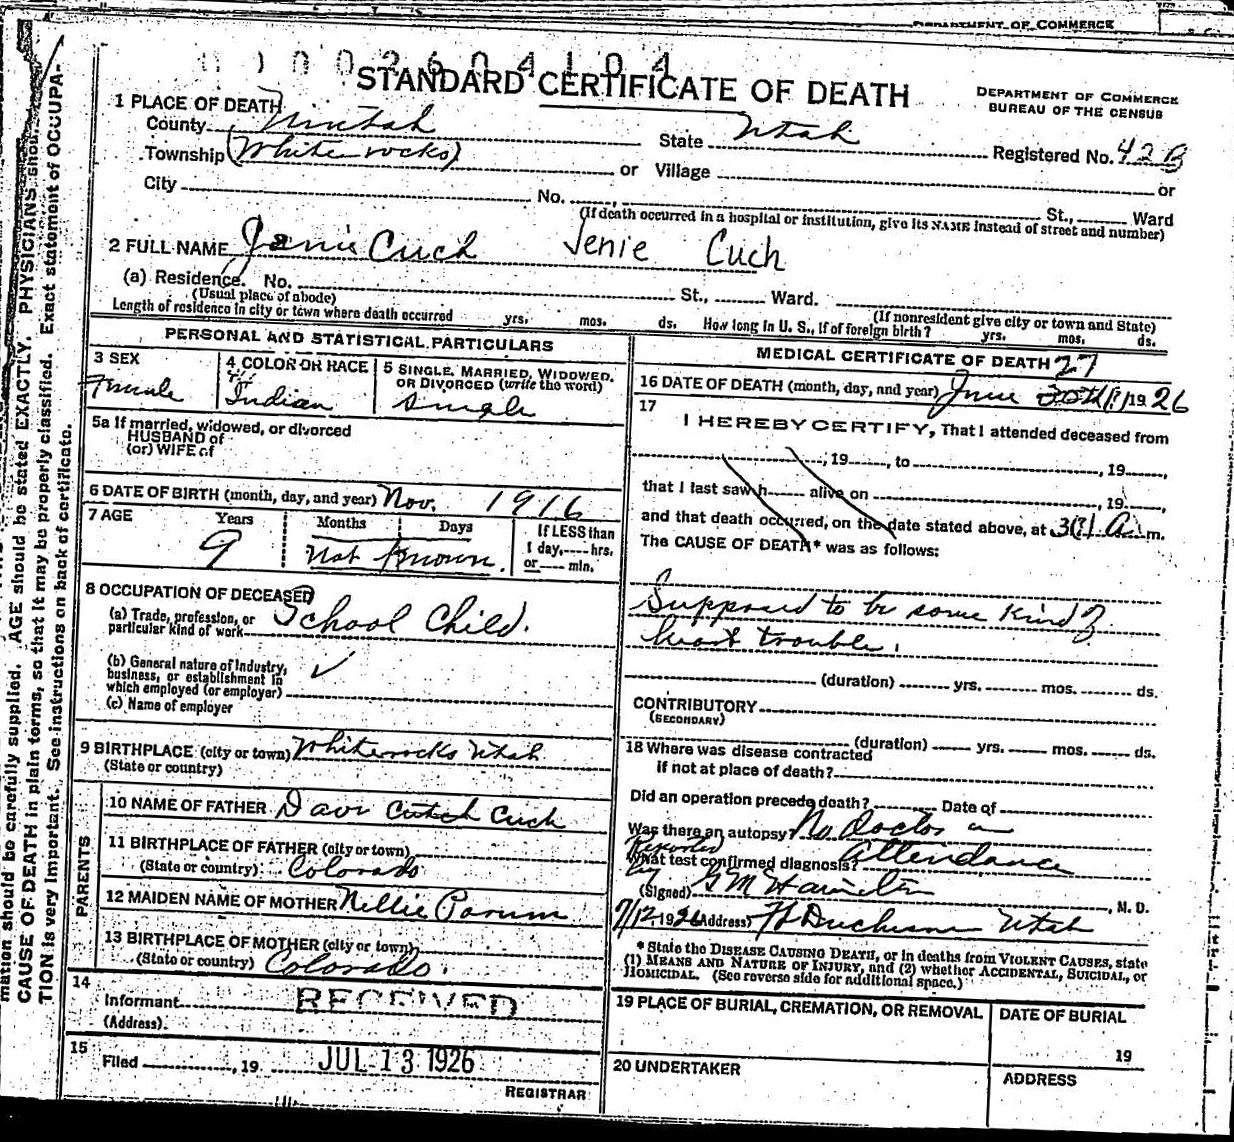 DEPARTMENT OF COMMERCE
0002604104
STANDARD CERTIFICATE OF DEATH
DEPARTMENT OF COMMERCE
BUREAU OF THE CENSUS
1 PLACE OF DEATH
County Uintah State Utah Registered No. 42B
Township (Whiterocks) or Village or
City No. St., Ward
(If death occurred in a hospital or institution, give its NAME instead of street and number)
2 FULL NAME Janie Cuch Jenie Cuch
(a) Residence. No. St., Ward.
(Usual place of abode) (If nonresident give city or town and State)
Length of residence in city or town where death occurred yrs. mos. ds. How long in U. S., if of foreign birth? yrs. mos. ds.
PERSONAL AND STATISTICAL PARTICULARS
3 SEX
Female
4 COLOR OR RACE
Indian
5 SINGLE, MARRIED, WIDOWED, OR DIVORCED (write the word)
Single
5a If married, widowed, or divorced
HUSBAND of
(or) WIFE of
6 DATE OF BIRTH (month, day, and year) Nov. 1916
7 AGE Years Months Days If LESS than
9 Not Known. 1 day, hrs.
or min.
8 OCCUPATION OF DECEASED
(a) Trade, profession, or
particular kind of work School Child.
(b) General nature of Industry,
business, or establishment in
which employed (or employer)
(c) Name of employer
9 BIRTHPLACE (city or town) Whiterocks Utah
(State or country)
PARENTS
10 NAME OF FATHER Dave Cutch Cuch
11 BIRTHPLACE OF FATHER (city or town)
(State or country) Colorado
12 MAIDEN NAME OF MOTHER Nellie Parum
13 BIRTHPLACE OF MOTHER (city or town)
(State or country) Colorado.
14
Informant RECEIVED
(Address)
15
Filed , 19 JUL 13 1926
REGISTRAR
MEDICAL CERTIFICATE OF DEATH
27
16 DATE OF DEATH (month, day, and year) June 30th(?) 1926
17
I HEREBY CERTIFY, That I attended deceased from
, 19 , to , 19 ,
that I last saw h alive on , 19 ,
and that death occurred, on the date stated above, at 3(?) A. m.
The CAUSE OF DEATH* was as follows:
Supposed to be some kind of
heart trouble.
(duration) yrs. mos. ds.
CONTRIBUTORY
(SECONDARY)
(duration) yrs. mos. ds.
18 Where was disease contracted
if not at place of death?
Did an operation precede death? Date of
Was there an autopsy No Doctor in
Reported
What test confirmed diagnosis? Attendance
by
(Signed) GM Hamilton , M. D.
7/12, 1926 (Address) Ft Duchesne Utah
* State the DISEASE CAUSING DEATH, or in deaths from VIOLENT CAUSES, state
(1) MEANS AND NATURE OF INJURY, and (2) whether ACCIDENTAL, SUICIDAL, or
HOMICIDAL. (See reverse side for additional space.)
19 PLACE OF BURIAL, CREMATION, OR REMOVAL DATE OF BURIAL
19
20 UNDERTAKER ADDRESS
mation should be carefully supplied. AGE should be stated EXACTLY. PHYSICIANS should
CAUSE OF DEATH in plain terms, so that it may be properly classified. Exact statement of OCCUPA-
TION is very important. See instructions on back of certificate.